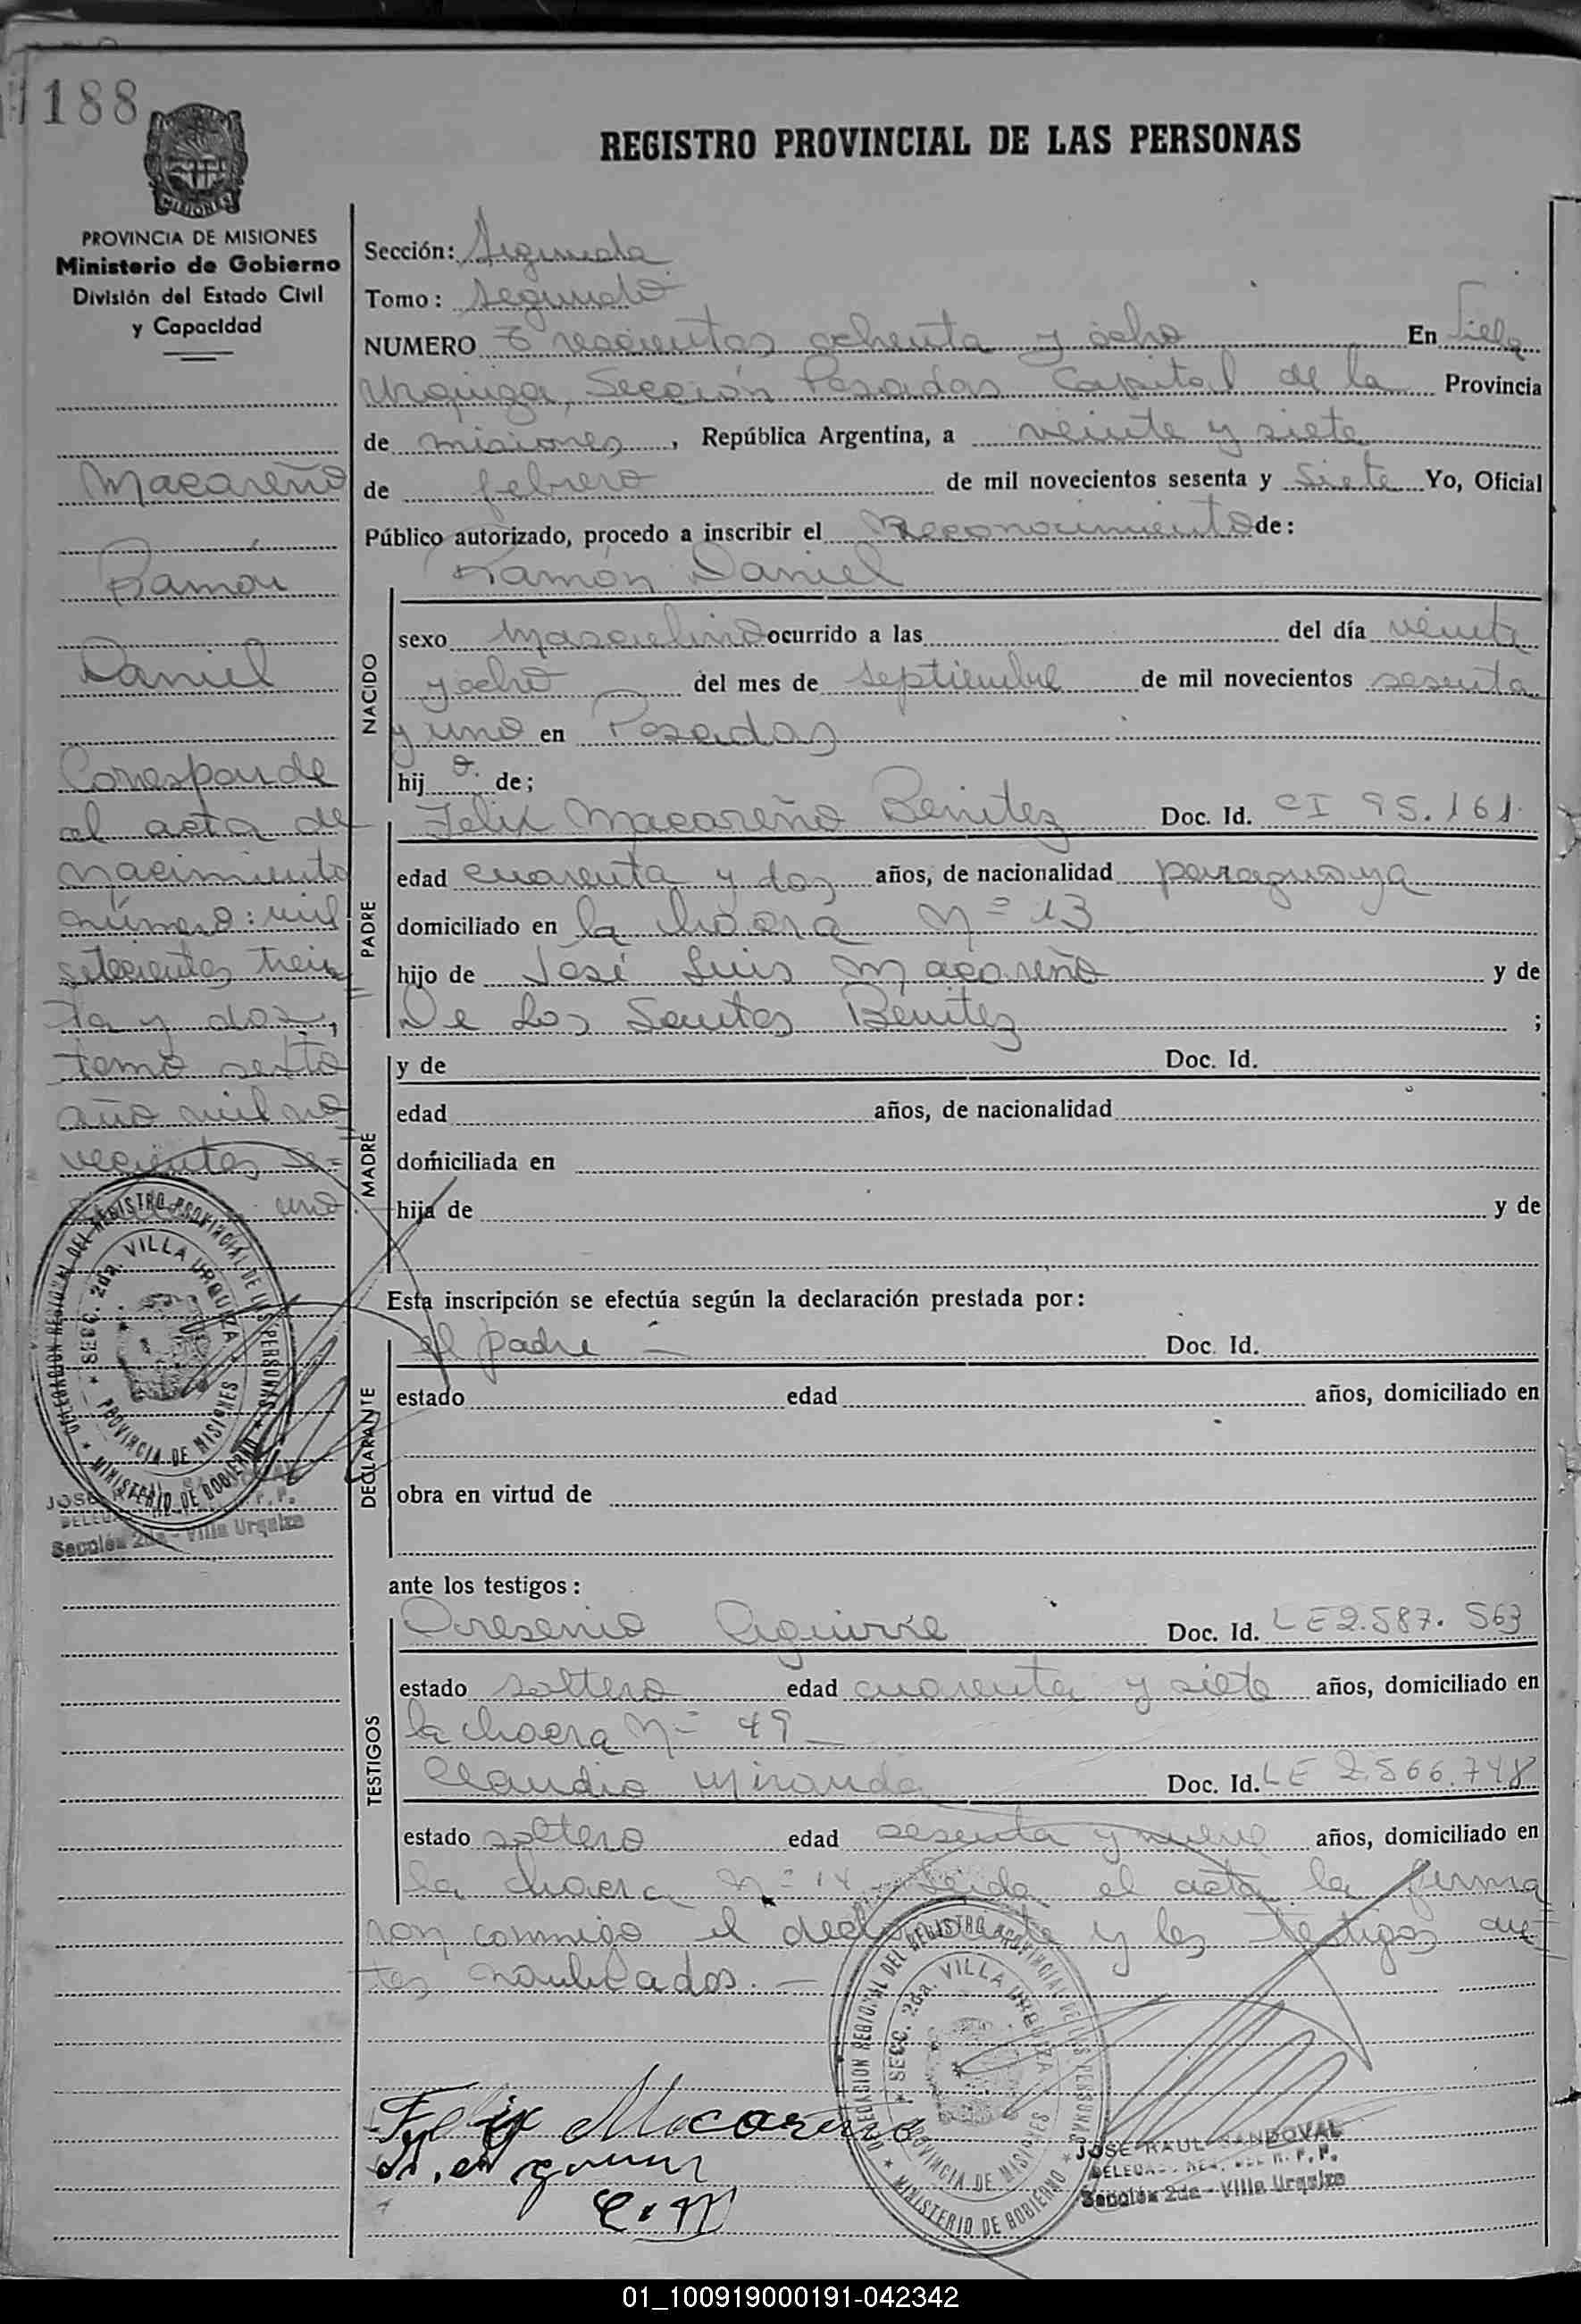 188
REGISTRO PROVINCIAL DE LAS PERSONAS
MISIONES
PROVINCIA DE MISIONES
Ministerio de Gobierno
División del Estado Civil
y Capacidad
Macareño
Ramón
Daniel
Corresponde
al acta de
nacimiento
número: mil
setecientos trein
ta y dos,
tomo sexto
año mil no
vecientos se=
uno
DELEGACION REGIONAL DEL REGISTRO PROVINCIAL DE LAS PERSONAS
* SECC. 2da. VILLA URQUIZA *
PROVINCIA DE MISIONES
* MINISTERIO DE GOBIERNO *
Sección 2da - Villa Urquiza
Sección: Segunda
Tomo: Segundo
NUMERO Trescientos ochenta y ocho En Villa
Urquiza, Sección Posadas Capital de la Provincia
de misiones, República Argentina, a veinte y siete
de febrero de mil novecientos sesenta y siete Yo, Oficial
Público autorizado, procedo a inscribir el Reconocimiento de:
Ramón Daniel
NACIDO
sexo Masculino ocurrido a las del día veinte
y ocho del mes de septiembre de mil novecientos sesenta
y uno en Posadas
hijo de;
PADRE
Felix Macareño Benitez Doc. Id. CI 95.161
edad cuarenta y dos años, de nacionalidad paraguaya
domiciliado en la chacra Nº 13
hijo de José Luis Macareño y de
De Los Santos Benitez ;
MADRE
y de Doc. Id.
edad años, de nacionalidad
domiciliada en
hija de y de
Esta inscripción se efectúa según la declaración prestada por:
DECLARANTE
el padre — Doc. Id.
estado edad años, domiciliado en
obra en virtud de
ante los testigos:
TESTIGOS
Arsenio Aguirre Doc. Id. LE 2.587.563
estado soltero edad cuarenta y siete años, domiciliado en
la chacra Nº 49 —
Claudio Miranda Doc. Id. LE 2.566.748
estado soltero edad sesenta y nueve años, domiciliado en
la chacra Nº 14 Leida el acta la firma
ron conmigo el declarante y los testigos an=
tes nombrados. —
Felix Macareño
C. M
DELEGACION REGIONAL DEL REGISTRO PROVINCIAL DE LAS PERSONAS
* SECC. 2da. VILLA URQUIZA *
PROVINCIA DE MISIONES
* MINISTERIO DE GOBIERNO *
JOSE RAUL SANDOVAL
Sección 2da - Villa Urquiza
01_100919000191-042342